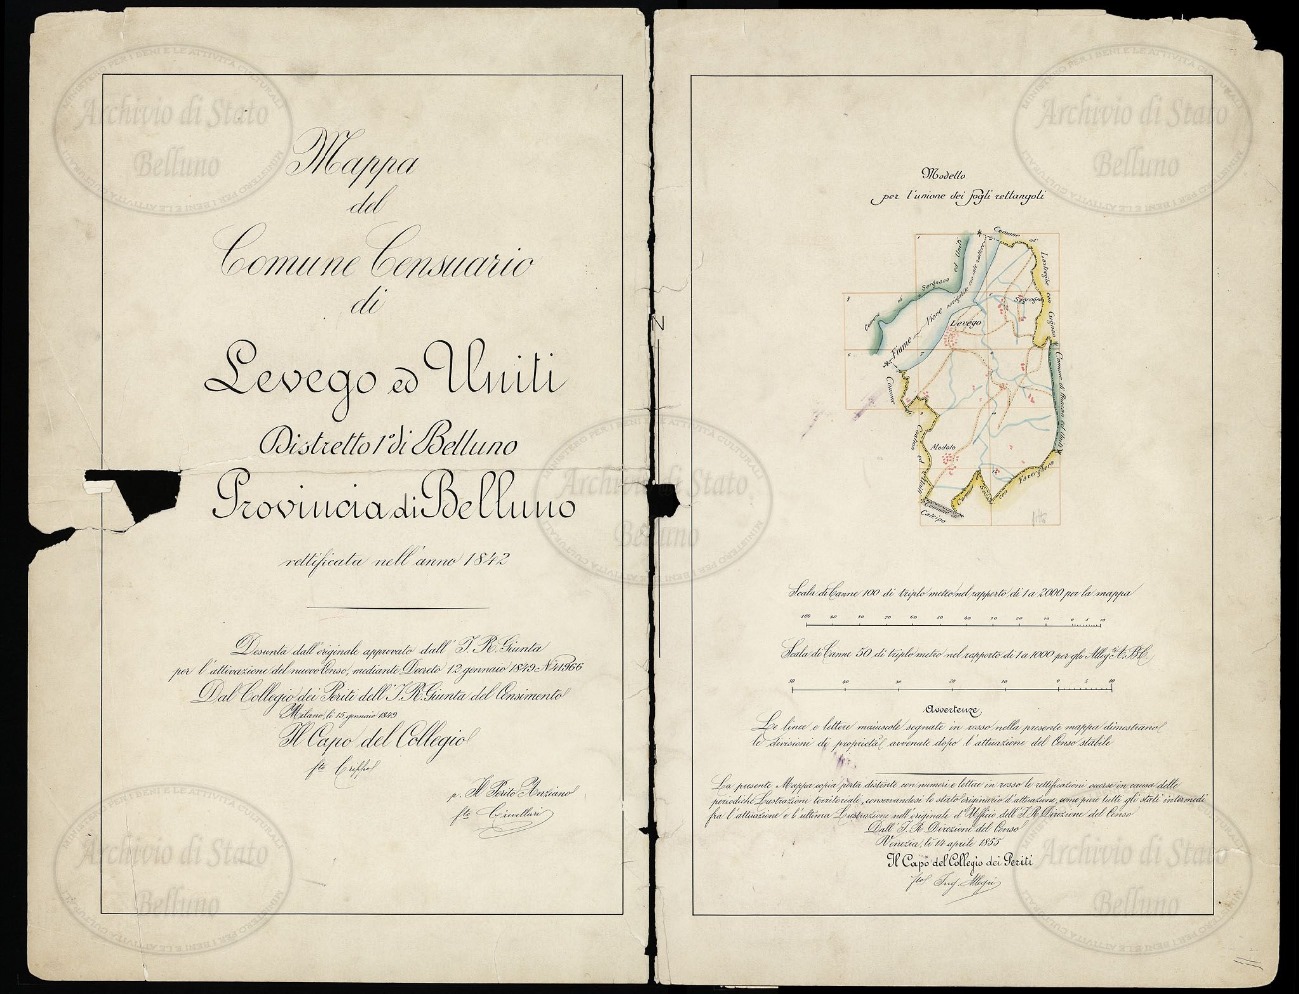 Mappa
del
Comune Censuario
di
Levego ed Uniti
Distretto 1° di Belluno
Provincia di Belluno
rettificata nell'anno 1842
Desunta dall'originale approvato dall' I. R. Giunta
per l'attivazione del nuovo Censo, mediante Decreto 12 gennaio 1849 N. 41966
Dal Collegio dei Periti dell' I. R. Giunta del Censimento
Milano, li 15 gennaio 1849
Il Capo del Collegio
fto
p. Il Perito Anziano
fto
Modello
per l'unione dei fogli rettangoli
Comune di
Sargnano ed Uniti
Fiume Piave
Levego
Sagrogna
Modolo
Scala di Canne 100 di triplo metro nel rapporto di 1 a 2000 per la mappa
Scala di Canne 50 di triplo metro nel rapporto di 1 a 1000 per gli Alleg.ti A. B. C.
Avvertenze
Le linee e lettere maiuscole segnate in rosso nella presente mappa dimostrano
le divisioni di proprietà avvenute dopo l'attuazione del Censo stabile
La presente Mappa copia porta distinte con numeri e lettere in rosso le rettificazioni occorse in causa delle
periodiche Lustrazioni territoriale, conservandosi lo stato originario d'attivazione, come pure tutti gli stati intermedi
fra l'attuazione e l'ultima Lustrazione nell'originale d'Ufficio dell' I. R. Direzione del Censo
Dall' I. R. Direzione del Censo
Venezia, li 14 aprile 1855
Il Capo del Collegio dei Periti
fto Ing. Allegri
N
Archivio di Stato
Belluno
MINISTERO PER I BENI E LE ATTIVITÀ CULTURALI